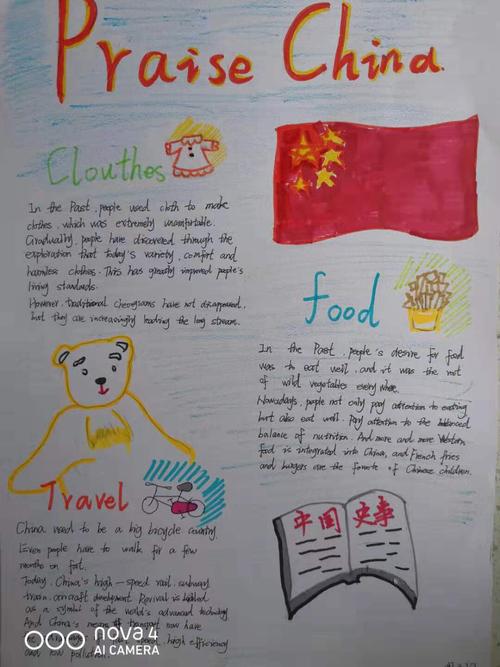 Praise China
Clouthes
In the Past, people used cloth to make
clothes, which was extremely uncomfortable.
Gradually, people have discovered through the
exploration that today's variety, comfort and
harmless clothes. This has greatly improved people's
living standards.
However, traditional cheongsams have not disappeared,
but they are increasingly leading the long stream.
food
In the Past, people's desire for food
was to eat well, and it was the root
of wild vegetables every where.
Nowadays, people not only pay attention to eating
but also eat well. Pay attention to the
balance of nutrition. And more and more Western
food is integrated into China, and French fries
and burgers are the favorite of Chinese children.
Travel
China used to be a big bicycle country.
Even people have to walk for a few
months on foot.
Today, China's high-speed rail, subway
train, aircraft development Revival is
as a symbol of the world's advanced technology
And China's means of transport now have
speed, high efficiency
and low pollution.
中国 史事
nova 4
AI CAMERA